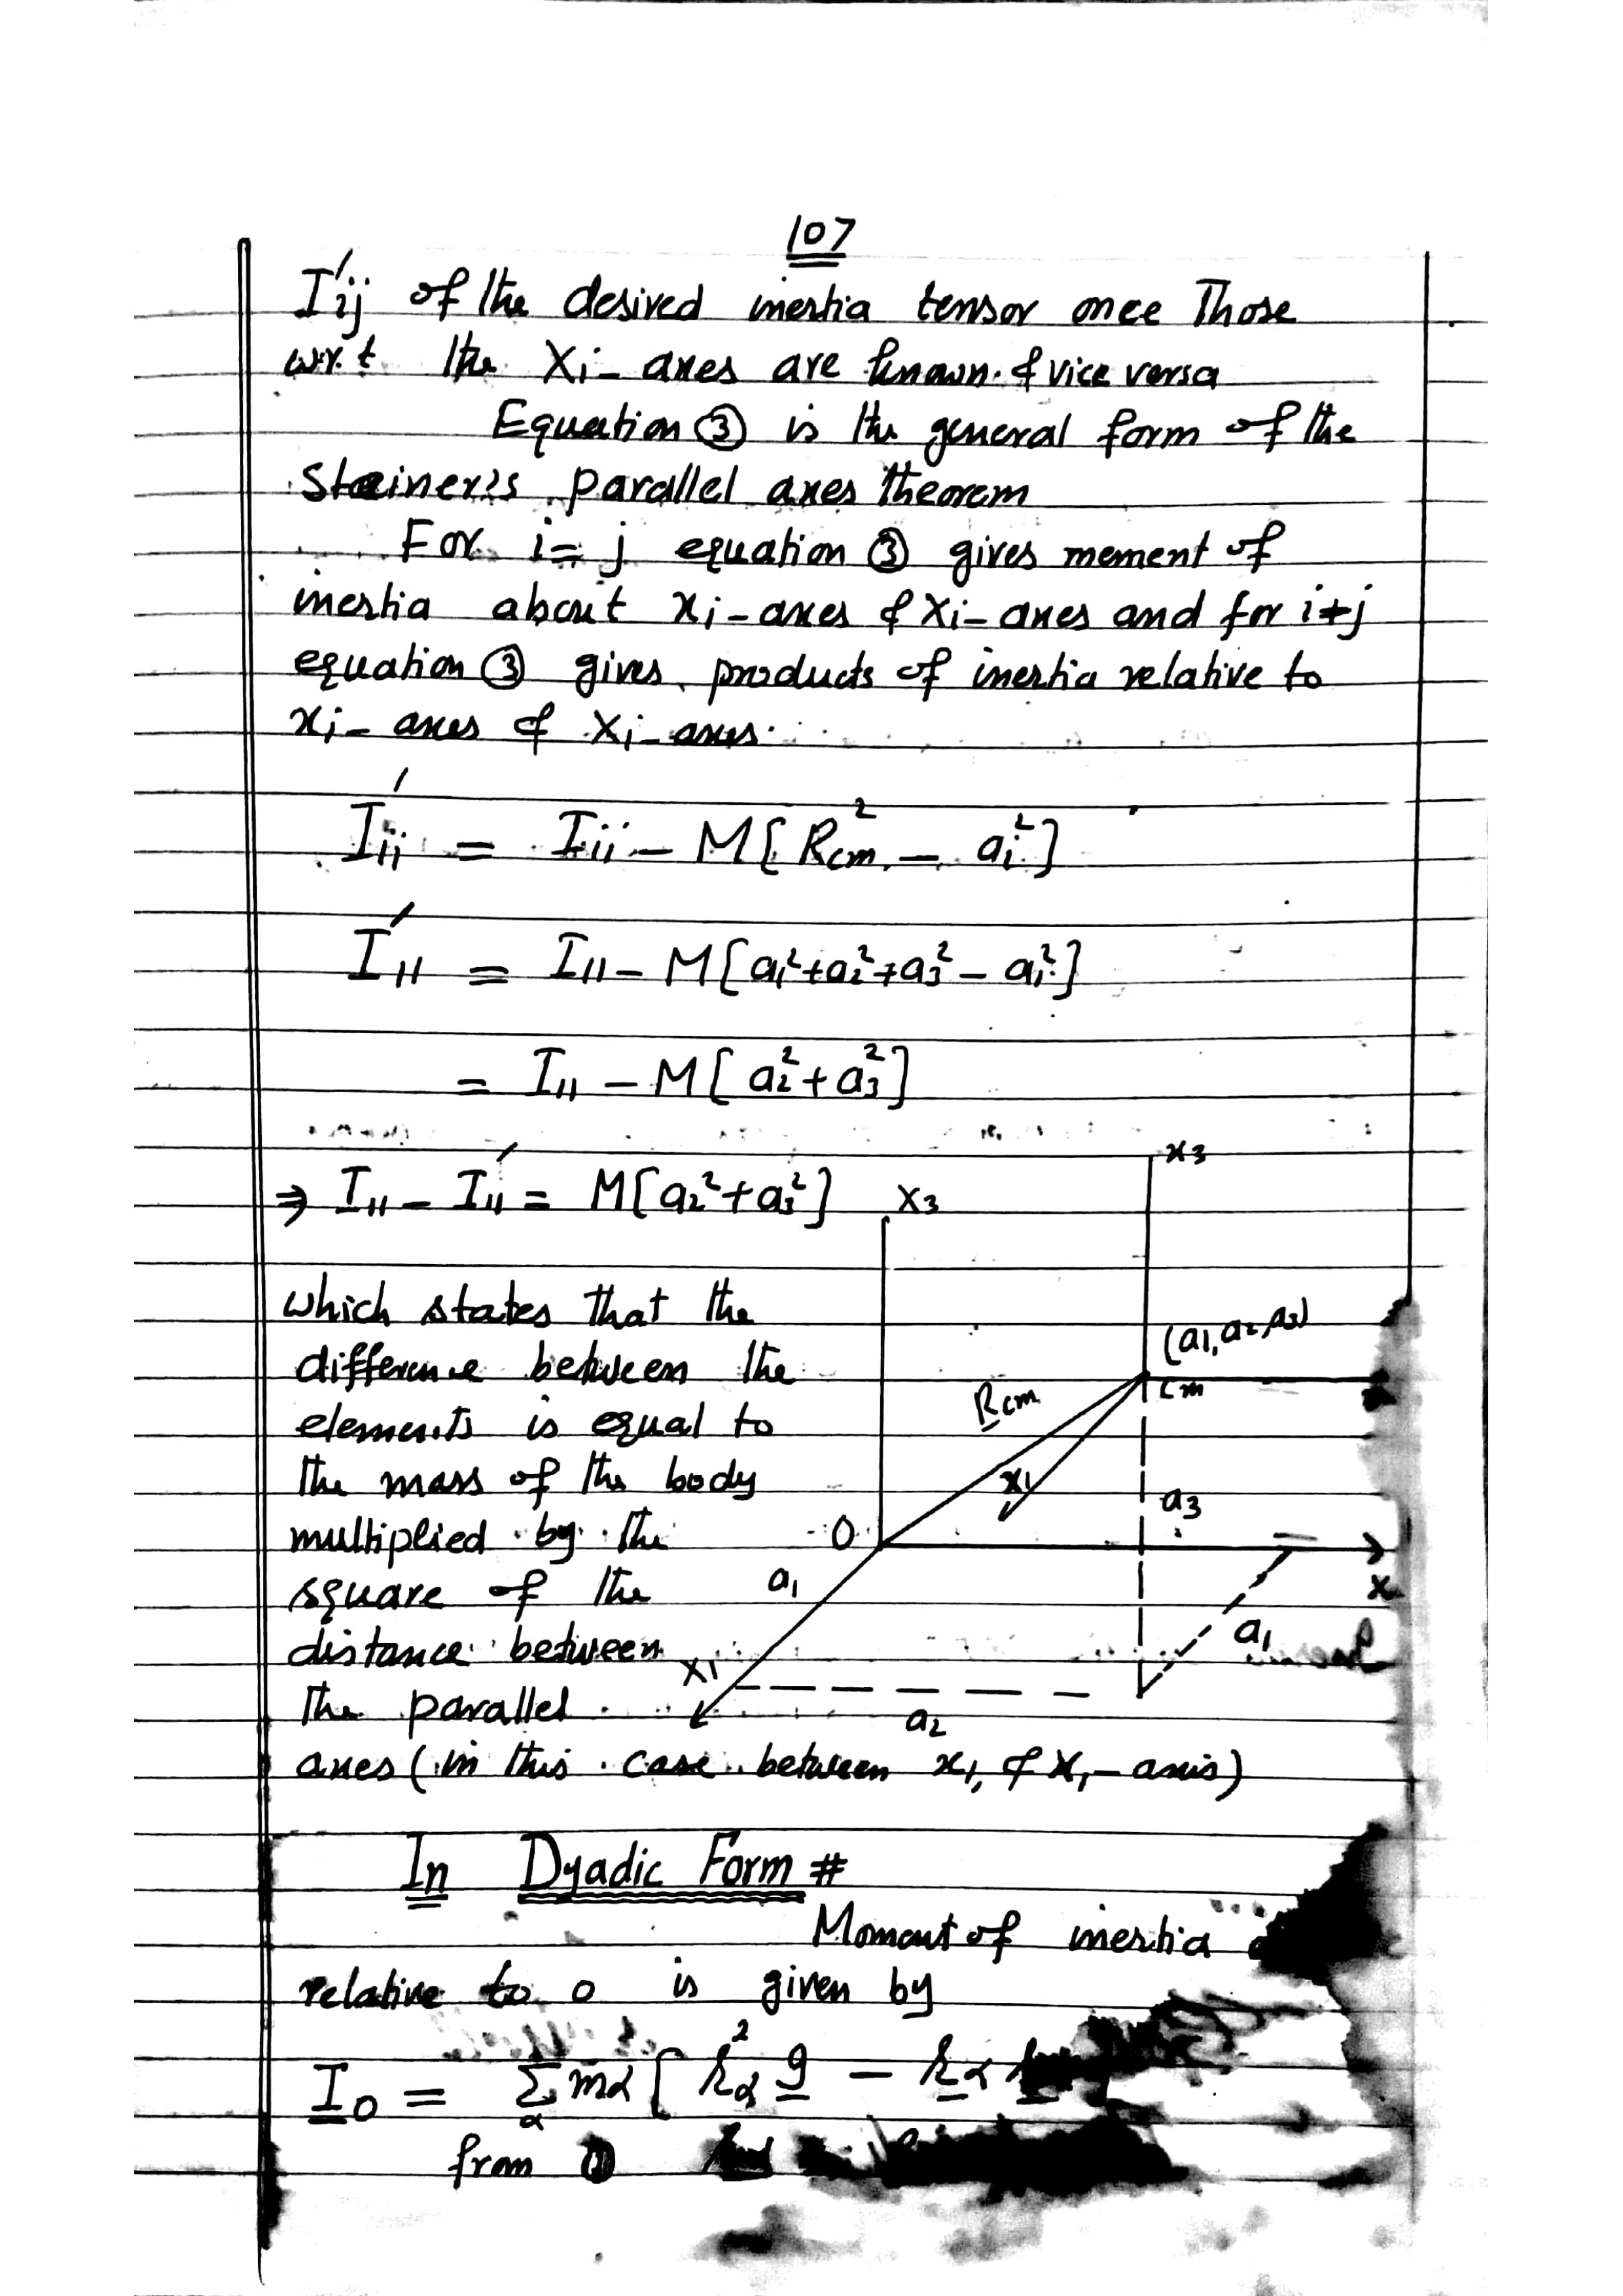 107
I'ij of the desired inertia tensor once Those
w.r.t the Xi- axes are known. & vice versa
Equation ③ is the general form of the
Steiner's parallel axes theorem
For i = j equation ③ gives mement of
inertia about xi-axes & Xi-axes and for i≠j
equation ③ gives products of inertia relative to
xi- axes & Xi-axes.
I'ii = Iii - M[Rcm² - ai²]
I'11 = I11 - M[a1²+a2²+a3² - a1²]
= I11 - M[a2²+a3²]
⇒ I11 - I'11 = M[a2²+a3²]
x3
X3
which states that the
difference between the
elements is equal to
the mass of the body
multiplied by the
square of the
distance between
the parallel
axes (in this case between x1, & X1-axis)
(a1, a2, a3)
cm
Rcm
x1
a3
O
x
a1
a1
X1
a2
In Dyadic Form #
Moment of inertia
relative to o is given by
I0 = Σα mα [ rα² g - rα
from ①